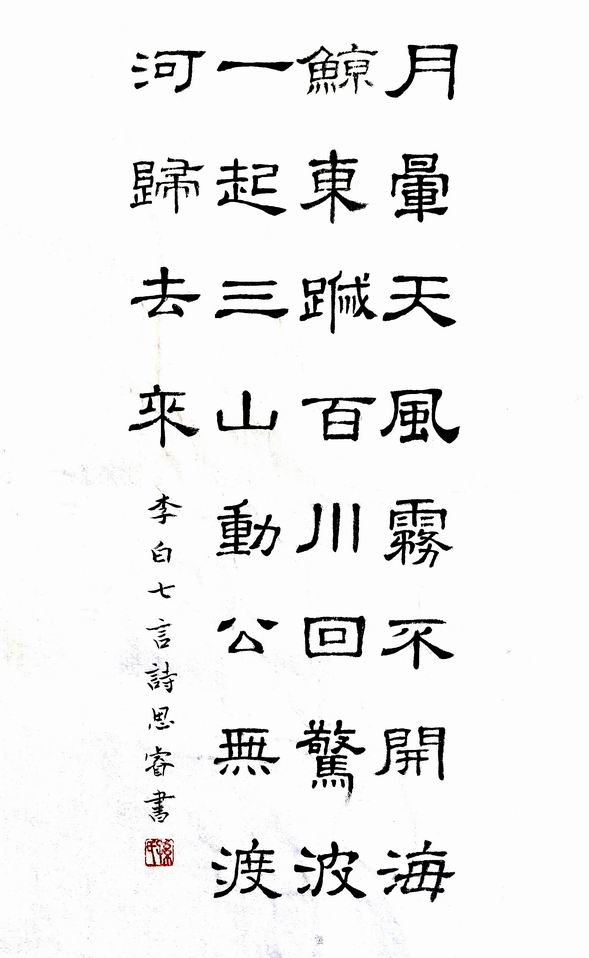 月暈天風霧不開海
鯨東䠞百川回驚波
一起三山動公無渡
河歸去來
李白七言詩思睿書